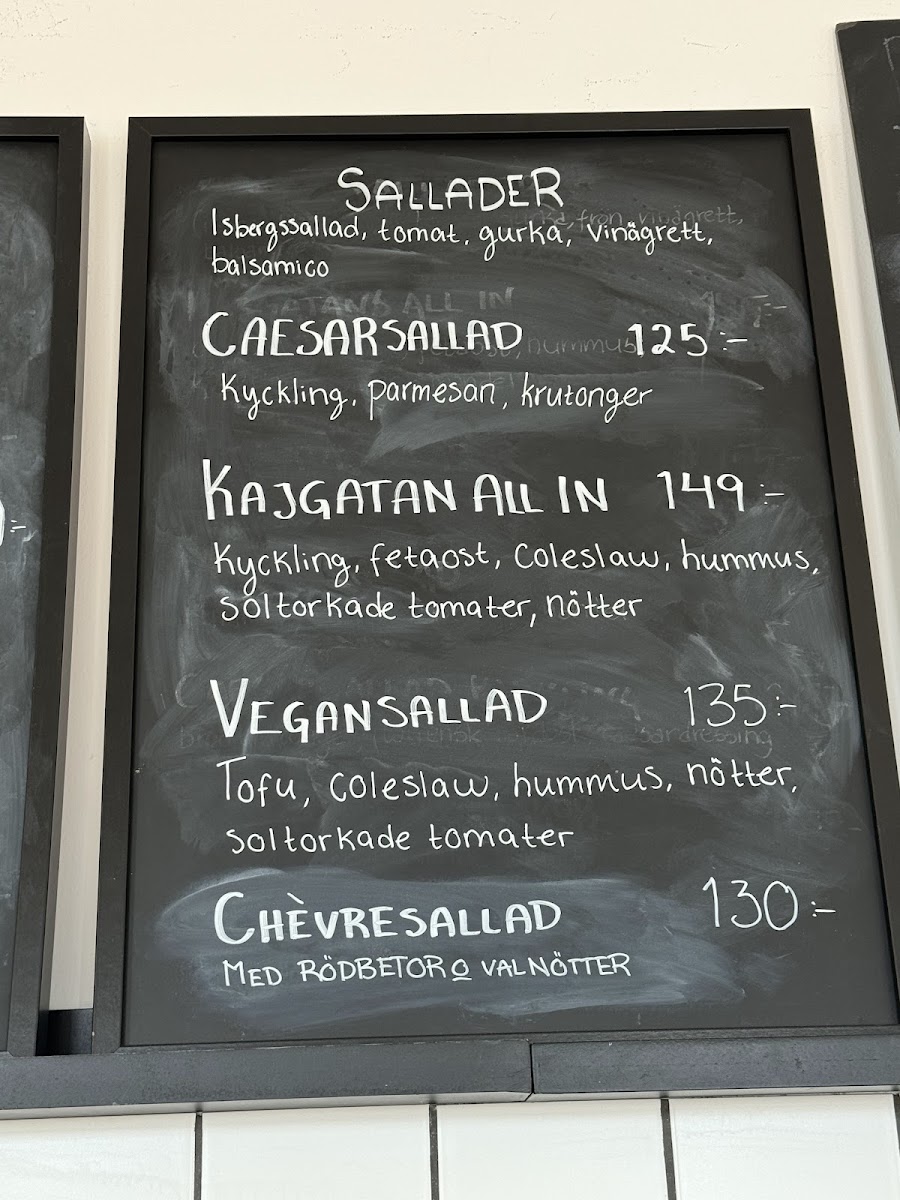 SALLADER
Isbergssallad, tomat, gurka, vinägrett,
balsamico
CAESARSALLAD 125:-
Kyckling, parmesan, krutonger
KAJGATAN ALL IN 149:-
Kyckling, fetaost, coleslaw, hummus,
soltorkade tomater, nötter
VEGANSALLAD 135:-
Tofu, coleslaw, hummus, nötter,
soltorkade tomater
CHÈVRESALLAD 130:-
MED RÖDBETOR O VALNÖTTER